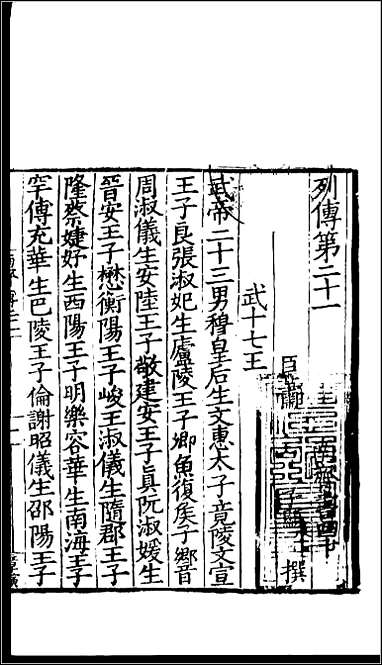 列傳第二十一
南齊書四十
臣蕭子顯撰
武十七王
武帝二十三男穆皇后生文惠太子竟陵文宣
王子良張淑妃生廬陵王子卿魚復侯子響
周淑儀生安陸王子敬建安王子真阮淑媛生
晉安王子懋衡陽王子峻王淑儀生隨郡王子
隆蔡婕妤生西陽王子明樂容華生南海王子
罕傅充華生巴陵王子倫謝昭儀生邵陽王子